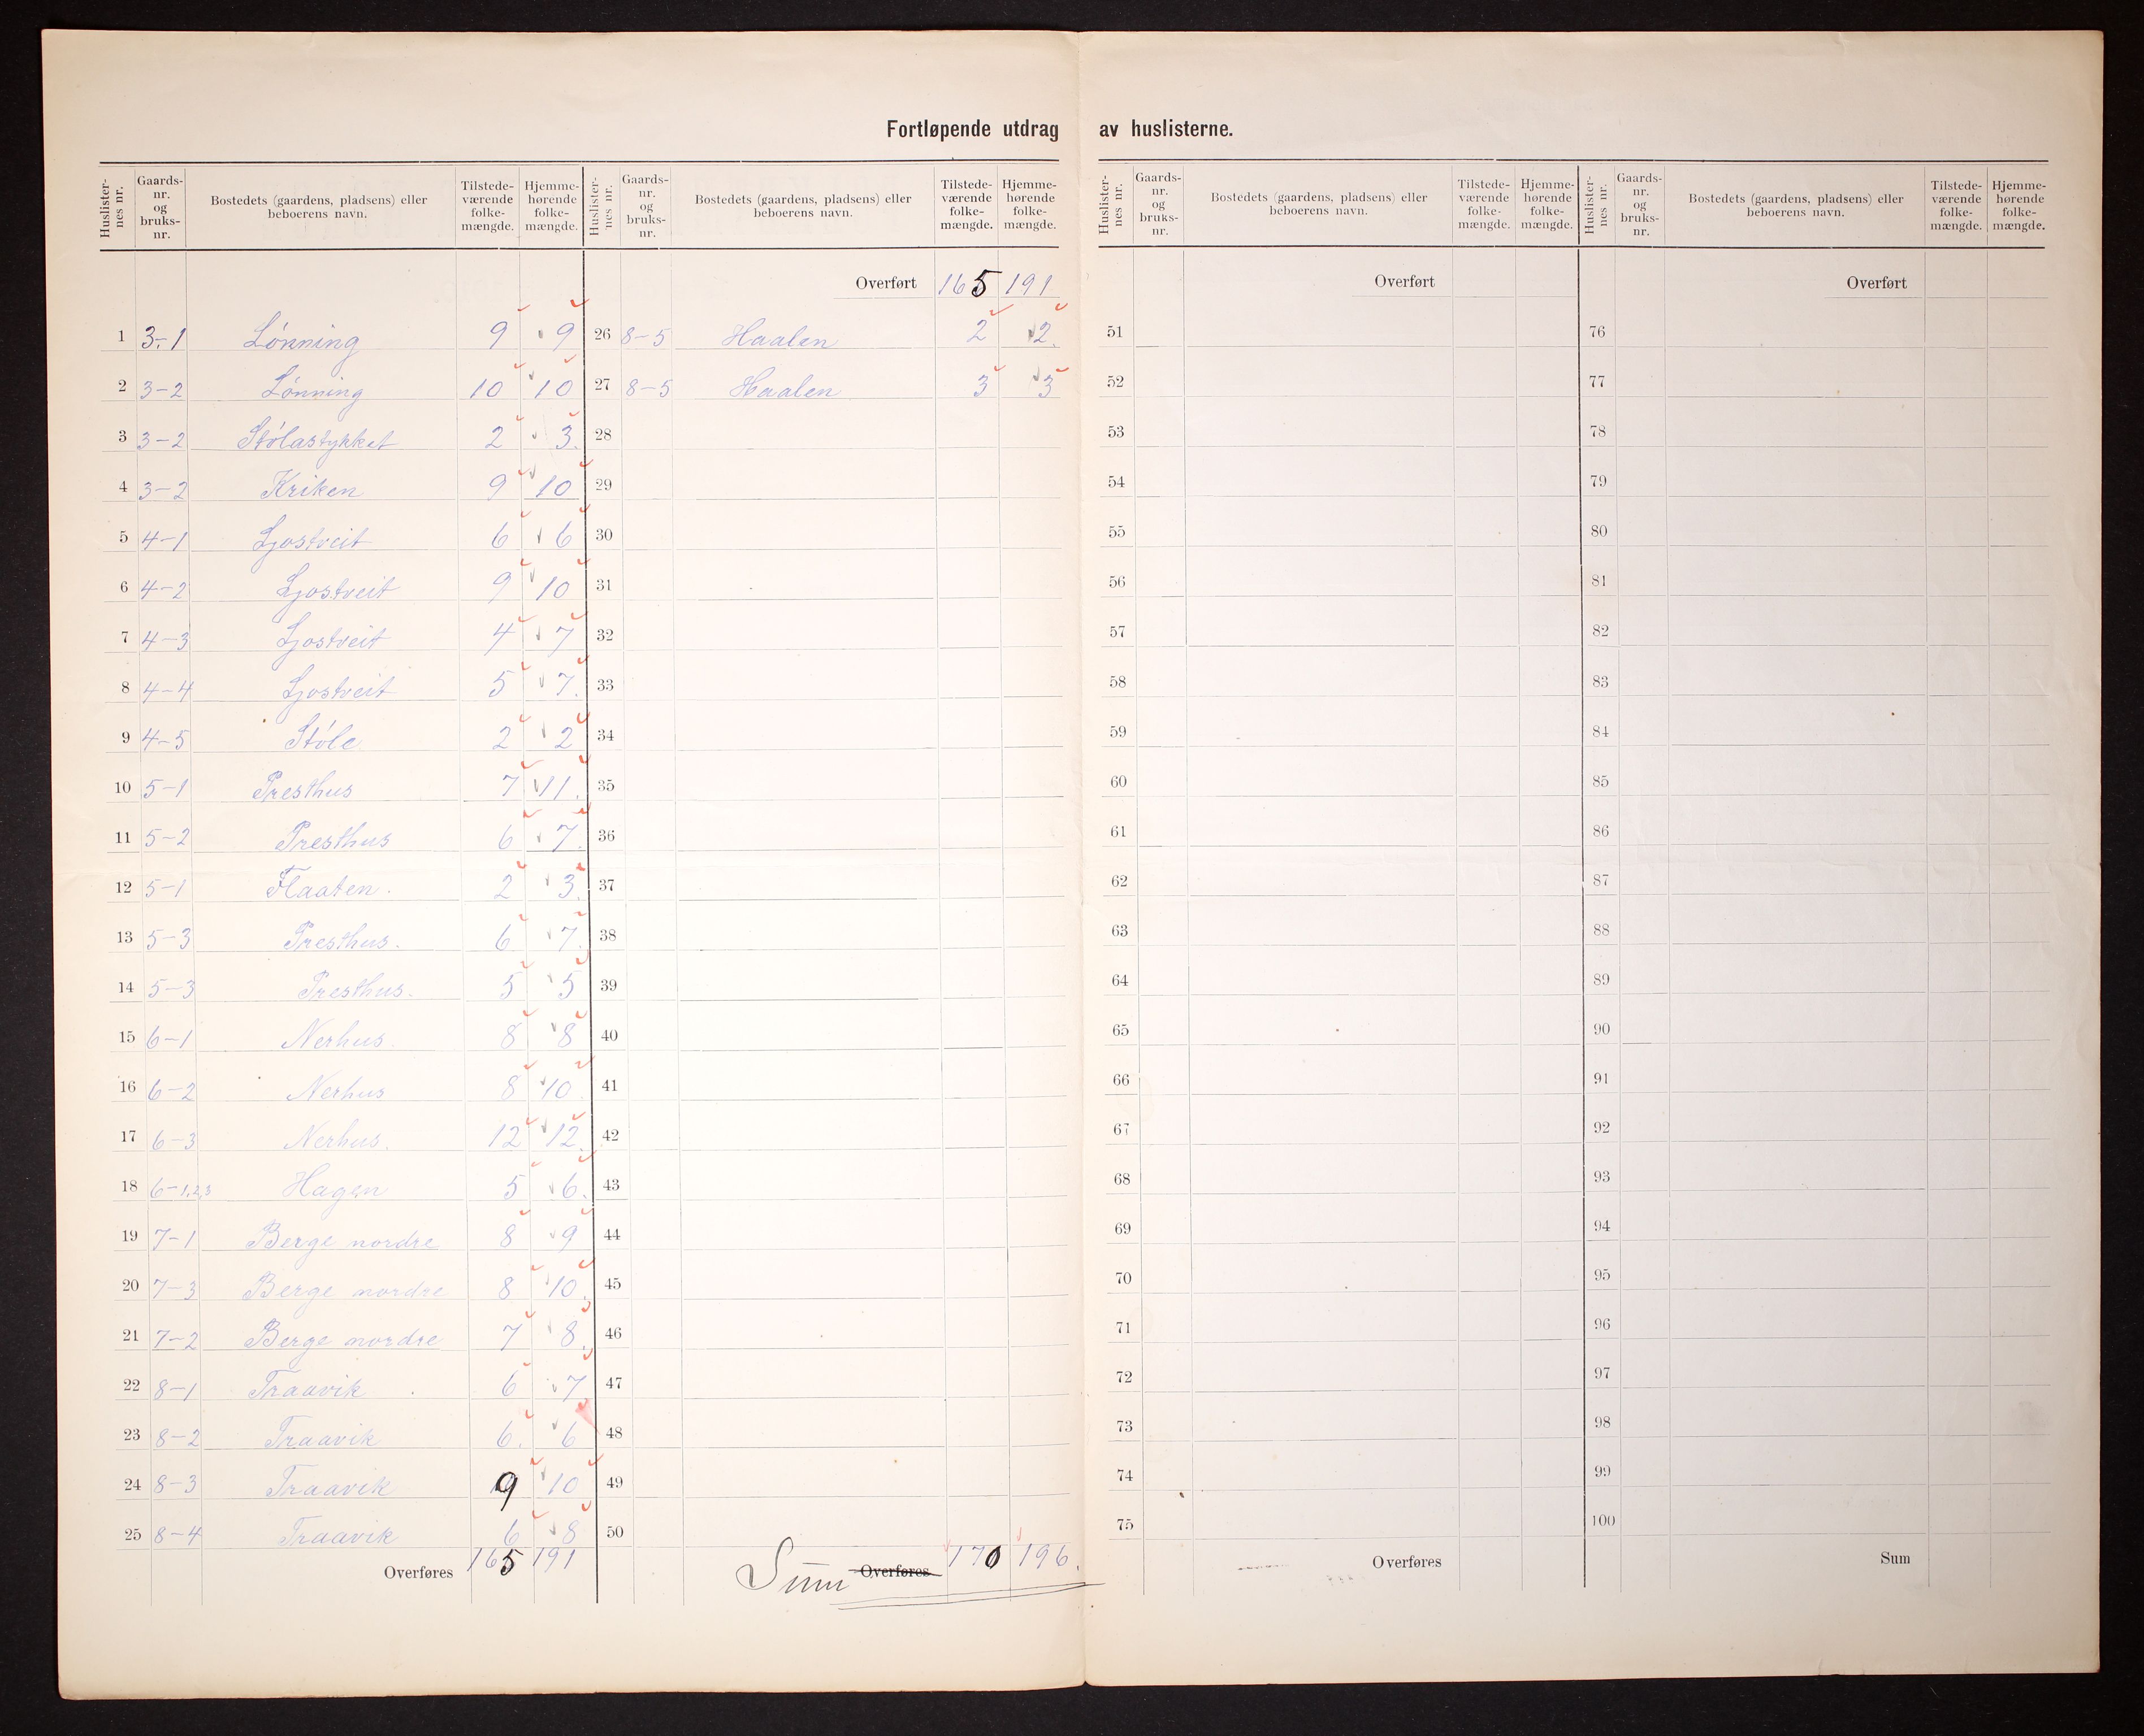 Fortløpende utdrag av huslisterne.
Huslisternes nr. | Gaards-nr. og bruks-nr. | Bostedets (gaardens, pladsens) eller beboerens navn. | Tilstedeværende folke-mængde. | Hjemmehørende folke-mængde.
1 3-1 Lønning 9 9
2 3-2 Lønning 10 10
3 3-2 Stólastykket 2 3
4 3-2 Kriken 9 10
5 4-1 Ljostveit 6 6
6 4-2 Ljostveit 9 10
7 4-3 Ljostveit 4 7
8 4-4 Ljostveit 5 7.
9 4-5 Stóle 2 2
10 5-1 Presthus 7 11.
11 5-2 Presthus 6 7.
12 5-1 Flaaten. 2 3.
13 5-3 Presthus. 6 7.
14 5-3 Presthus. 5 5
15 6-1 Nerhus. 8 8
16 6-2 Nerhus 8 10.
17 6-3 Nerhus. 12 12.
18 6-1,2,3 Hagen 5 6.
19 7-1 Berge nordre 8 9
20 7-3 Berge nordre 8 10.
21 7-2 Berge nordre 7 8.
22 8-1 Traavik 6 7
23 8-2 Traavik 6. 6
24 8-3 Traavik 9 10
25 8-4 Traavik 6 8
Overføres 165 191
Huslisternes nr. | Gaards-nr. og bruks-nr. | Bostedets (gaardens, pladsens) eller beboerens navn. | Tilstedeværende folke-mængde. | Hjemmehørende folke-mængde.
Overført 165 191
26 8-5 Haalen 2 2.
27 8-5 Haalen 3 3
28
29
30
31
32
33
34
35
36
37
38
39
40
41
42
43
44
45
46
47
48
49
50
Sum Overføres 170 196.
Huslisternes nr. | Gaards-nr. og bruks-nr. | Bostedets (gaardens, pladsens) eller beboerens navn. | Tilstedeværende folke-mængde. | Hjemmehørende folke-mængde.
Overført
51
52
53
54
55
56
57
58
59
60
61
62
63
64
65
66
67
68
69
70
71
72
73
74
75
Overføres
Huslisternes nr. | Gaards-nr. og bruks-nr. | Bostedets (gaardens, pladsens) eller beboerens navn. | Tilstedeværende folke-mængde. | Hjemmehørende folke-mængde.
Overført
76
77
78
79
80
81
82
83
84
85
86
87
88
89
90
91
92
93
94
95
96
97
98
99
100
Sum